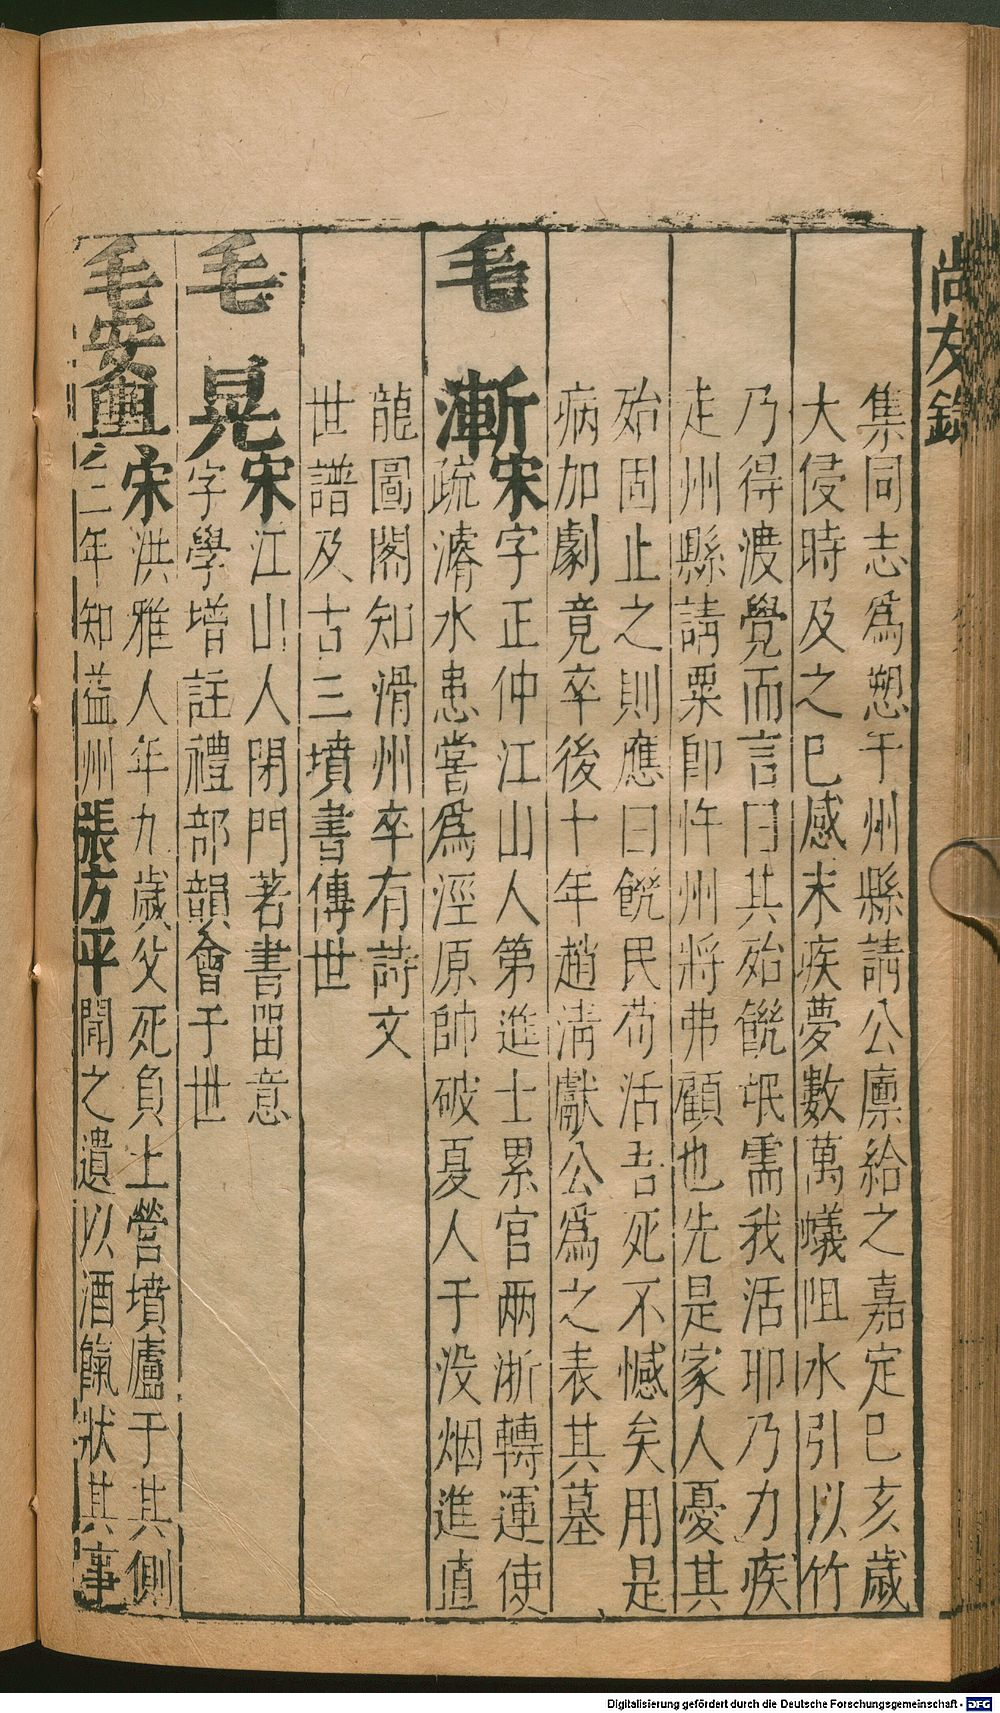 尚友錄
集同志爲愬于州縣請公廪給之嘉定已亥歲
大侵時及之已感末疾夢數萬蟻阻水引以竹
乃得渡覺而言曰其殆饑氓需我活耶乃力疾
走州縣請粟卽忤州將弗顧也先是家人憂其
殆固止之則應曰饑民荷活吾死不憾矣用是
病加劇竟卒後十年趙淸獻公爲之表其墓
毛漸宋字正仲江山人第進士累官兩浙轉運使
疏濬水患嘗爲涇原帥破夏人于没烟進直
龍圖閣知滑州卒有詩文
世譜及古三墳書傳世
毛晃宋江山人閉門著書畱意
字學增註禮部韻會于世
毛安輿宋洪雅人年九歲父死負土營墳廬于其側
之二年知益州張方平聞之遺以酒餼狀其事
Digitalisierung gefördert durch die Deutsche Forschungsgemeinschaft - DFG